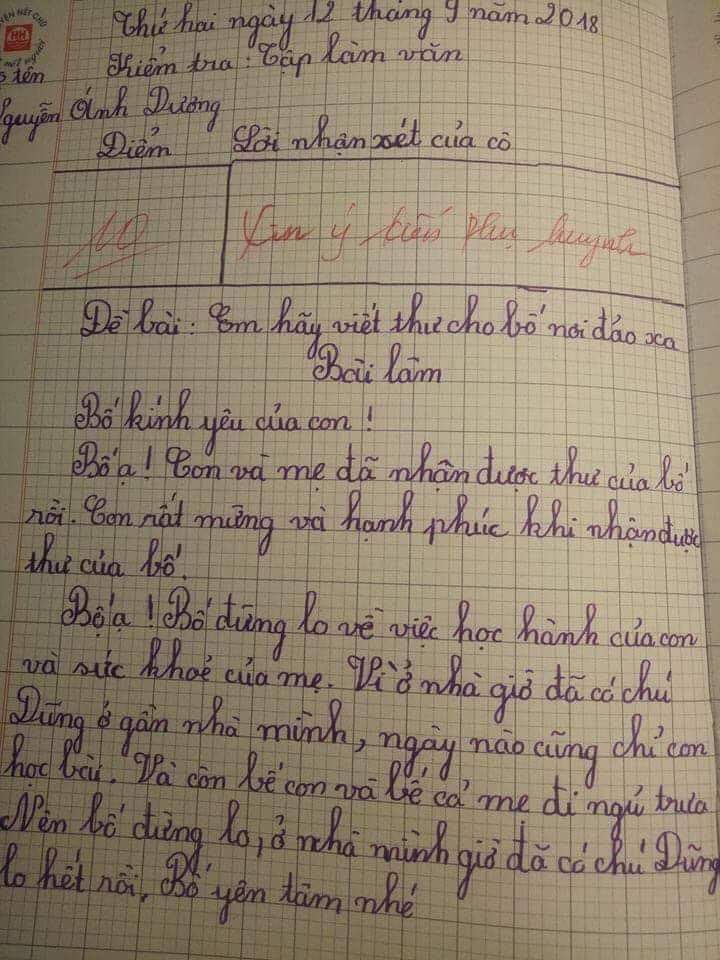 Thứ hai ngày 12 tháng 9 năm 2018
Kiểm tra: Tập làm văn
tên
Nguyễn Ánh Dương
Điểm Lời nhận xét của cô
10 Xin ý kiến phụ huynh
Đề bài: Em hãy viết thư cho bố nơi đảo xa
Bài làm
Bố kính yêu của con!
Bố ạ! Con và mẹ đã nhận được thư của bố
rồi. Con rất mừng và hạnh phúc khi nhận được
thư của bố.
Bố ạ! Bố đừng lo về việc học hành của con
và sức khoẻ của mẹ. Vì ở nhà giờ đã có chú
Dũng ở gần nhà mình, ngày nào cũng chỉ con
học bài. Và còn bế con và bế cả mẹ đi ngủ trưa
Nên bố đừng lo, ở nhà mình giờ đã có chú Dũng
lo hết rồi, Bố yên tâm nhé